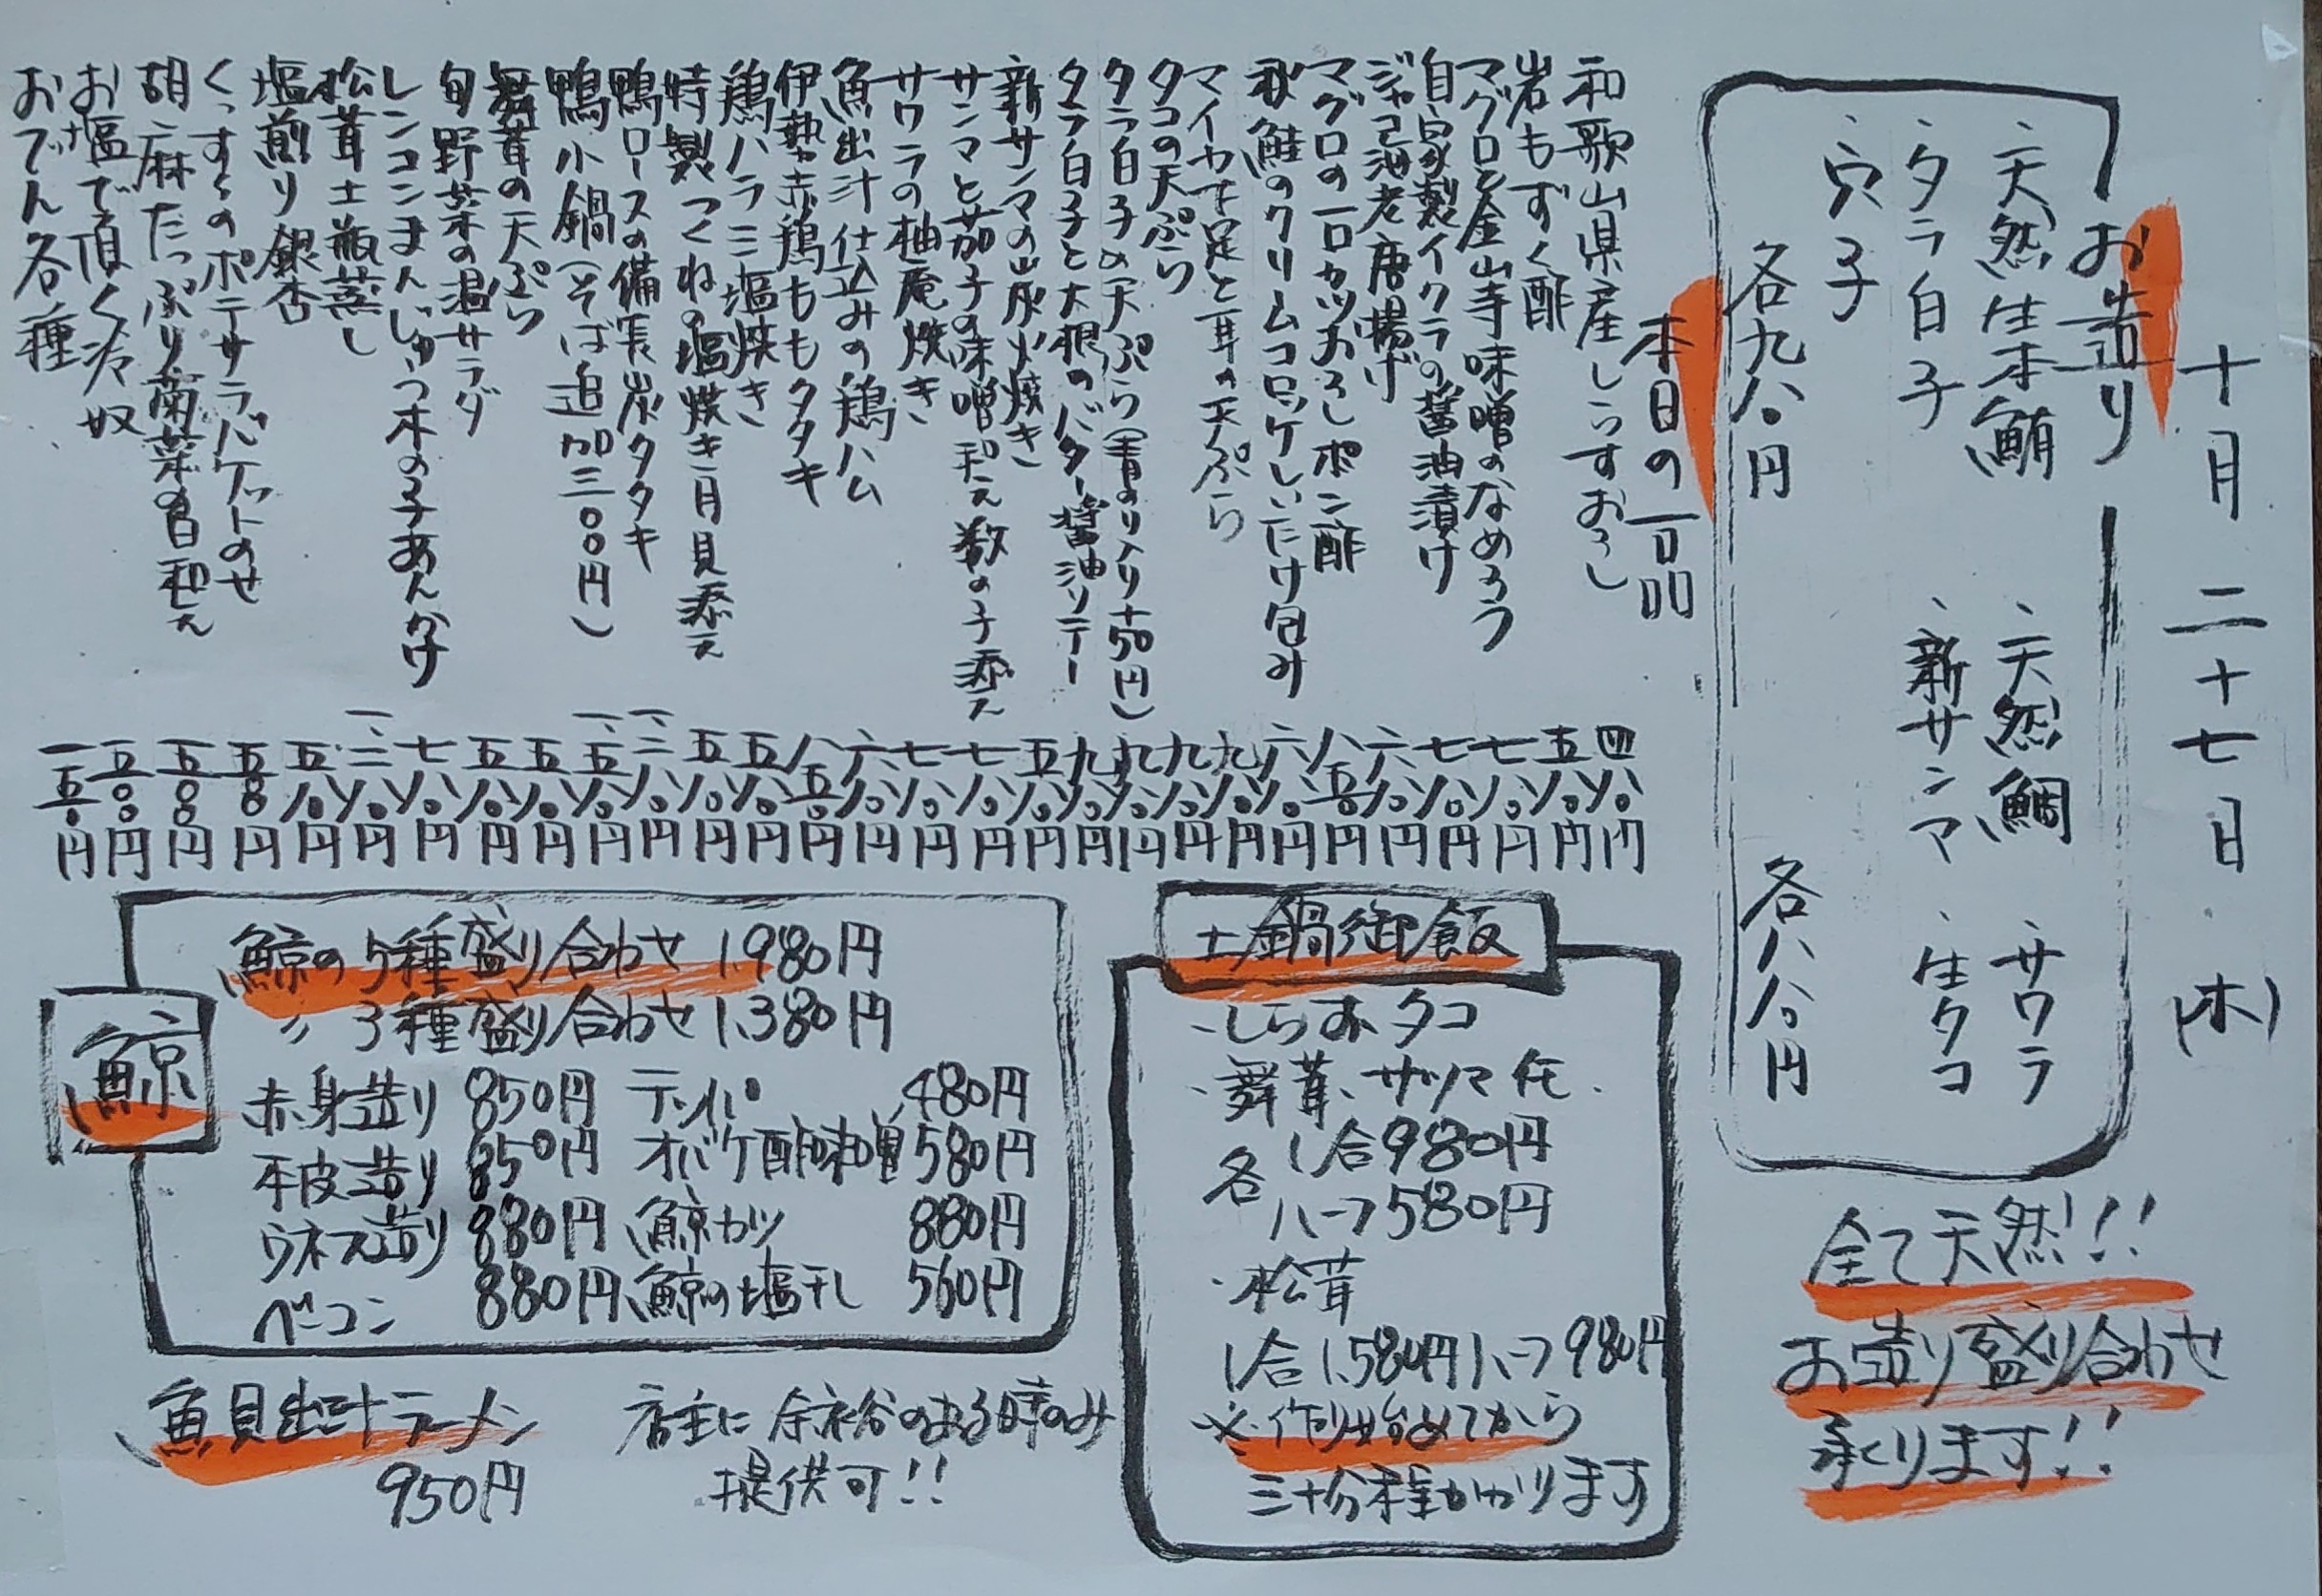 十月二十七日(木)
お造り
、天然生本鮪 、天然鯛 、サワラ
、タラ白子 、新サンマ 、生タコ
、穴子
各九八〇円 各八八〇円
全て天然!!
お造り盛り合わせ
承くります!!
本日の一品
和歌山県産しらすおろし 四八〇円
岩もずく酢 五八〇円
マグロと金山寺味噌のなめろう 七八〇円
自家製イクラの醤油漬け 七八〇円
ジャコ海老唐揚げ 六八〇円
マグロの一口カツおろしポン酢 八五〇円
秋鮭のクリームコロッケしいたけ包み 六八〇円
マイカ下足と耳の天ぷら 九八〇円
タコの天ぷら 九八〇円
タラ白子の天ぷら(青のり入り+50円) 九八〇円
タラ白子と大根のバター醤油ソテー 九八〇円
新サンマの炭火焼き 五八〇円
サンマと茄子の味噌和え数の子添え 七八〇円
サワラの柚庵焼き 七八〇円
魚出汁仕込みの鶏ハム 六八〇円
伊勢赤鶏ももタタキ 八五〇円
鶏ハラミ塩焼き 五八〇円
特製つくねの塩焼き月見添え 五八〇円
鴨ロースの備長炭タタキ 一、二八〇円
鴨小鍋(そば追加三〇〇円) 一、五八〇円
舞茸の天ぷら 五八〇円
旬野菜の温サラダ 五八〇円
レンコンまんじゅう木の子あんかけ 七八〇円
松茸土瓶蒸し 一、二八〇円
塩煎り銀杏 五八〇円
くっすぅのポテサラバケットのせ 五〇〇円
胡麻たっぷり菊菜の白和え 五〇〇円
お塩で頂く冷奴 五〇〇円
おでん各種 一五〇円
土鍋御飯
・しらす、タコ
・舞茸、サツマ任
各 1合980円
ハーフ580円
・松茸
1合1,580円ハーフ980円
※作り始めてから
三十分程かかります
鯨
鯨の5種盛り合わせ 1,980円
〃 3種盛り合わせ 1,380円
赤身造り 850円 テッパ 480円
本皮造り 850円 オバケ酢味噌 580円
ウネス造り 880円 鯨カツ 880円
ベーコン 880円 鯨の塩干し 560円
魚貝出汁ラーメン
950円
店主に余裕のある時のみ
提供可!!